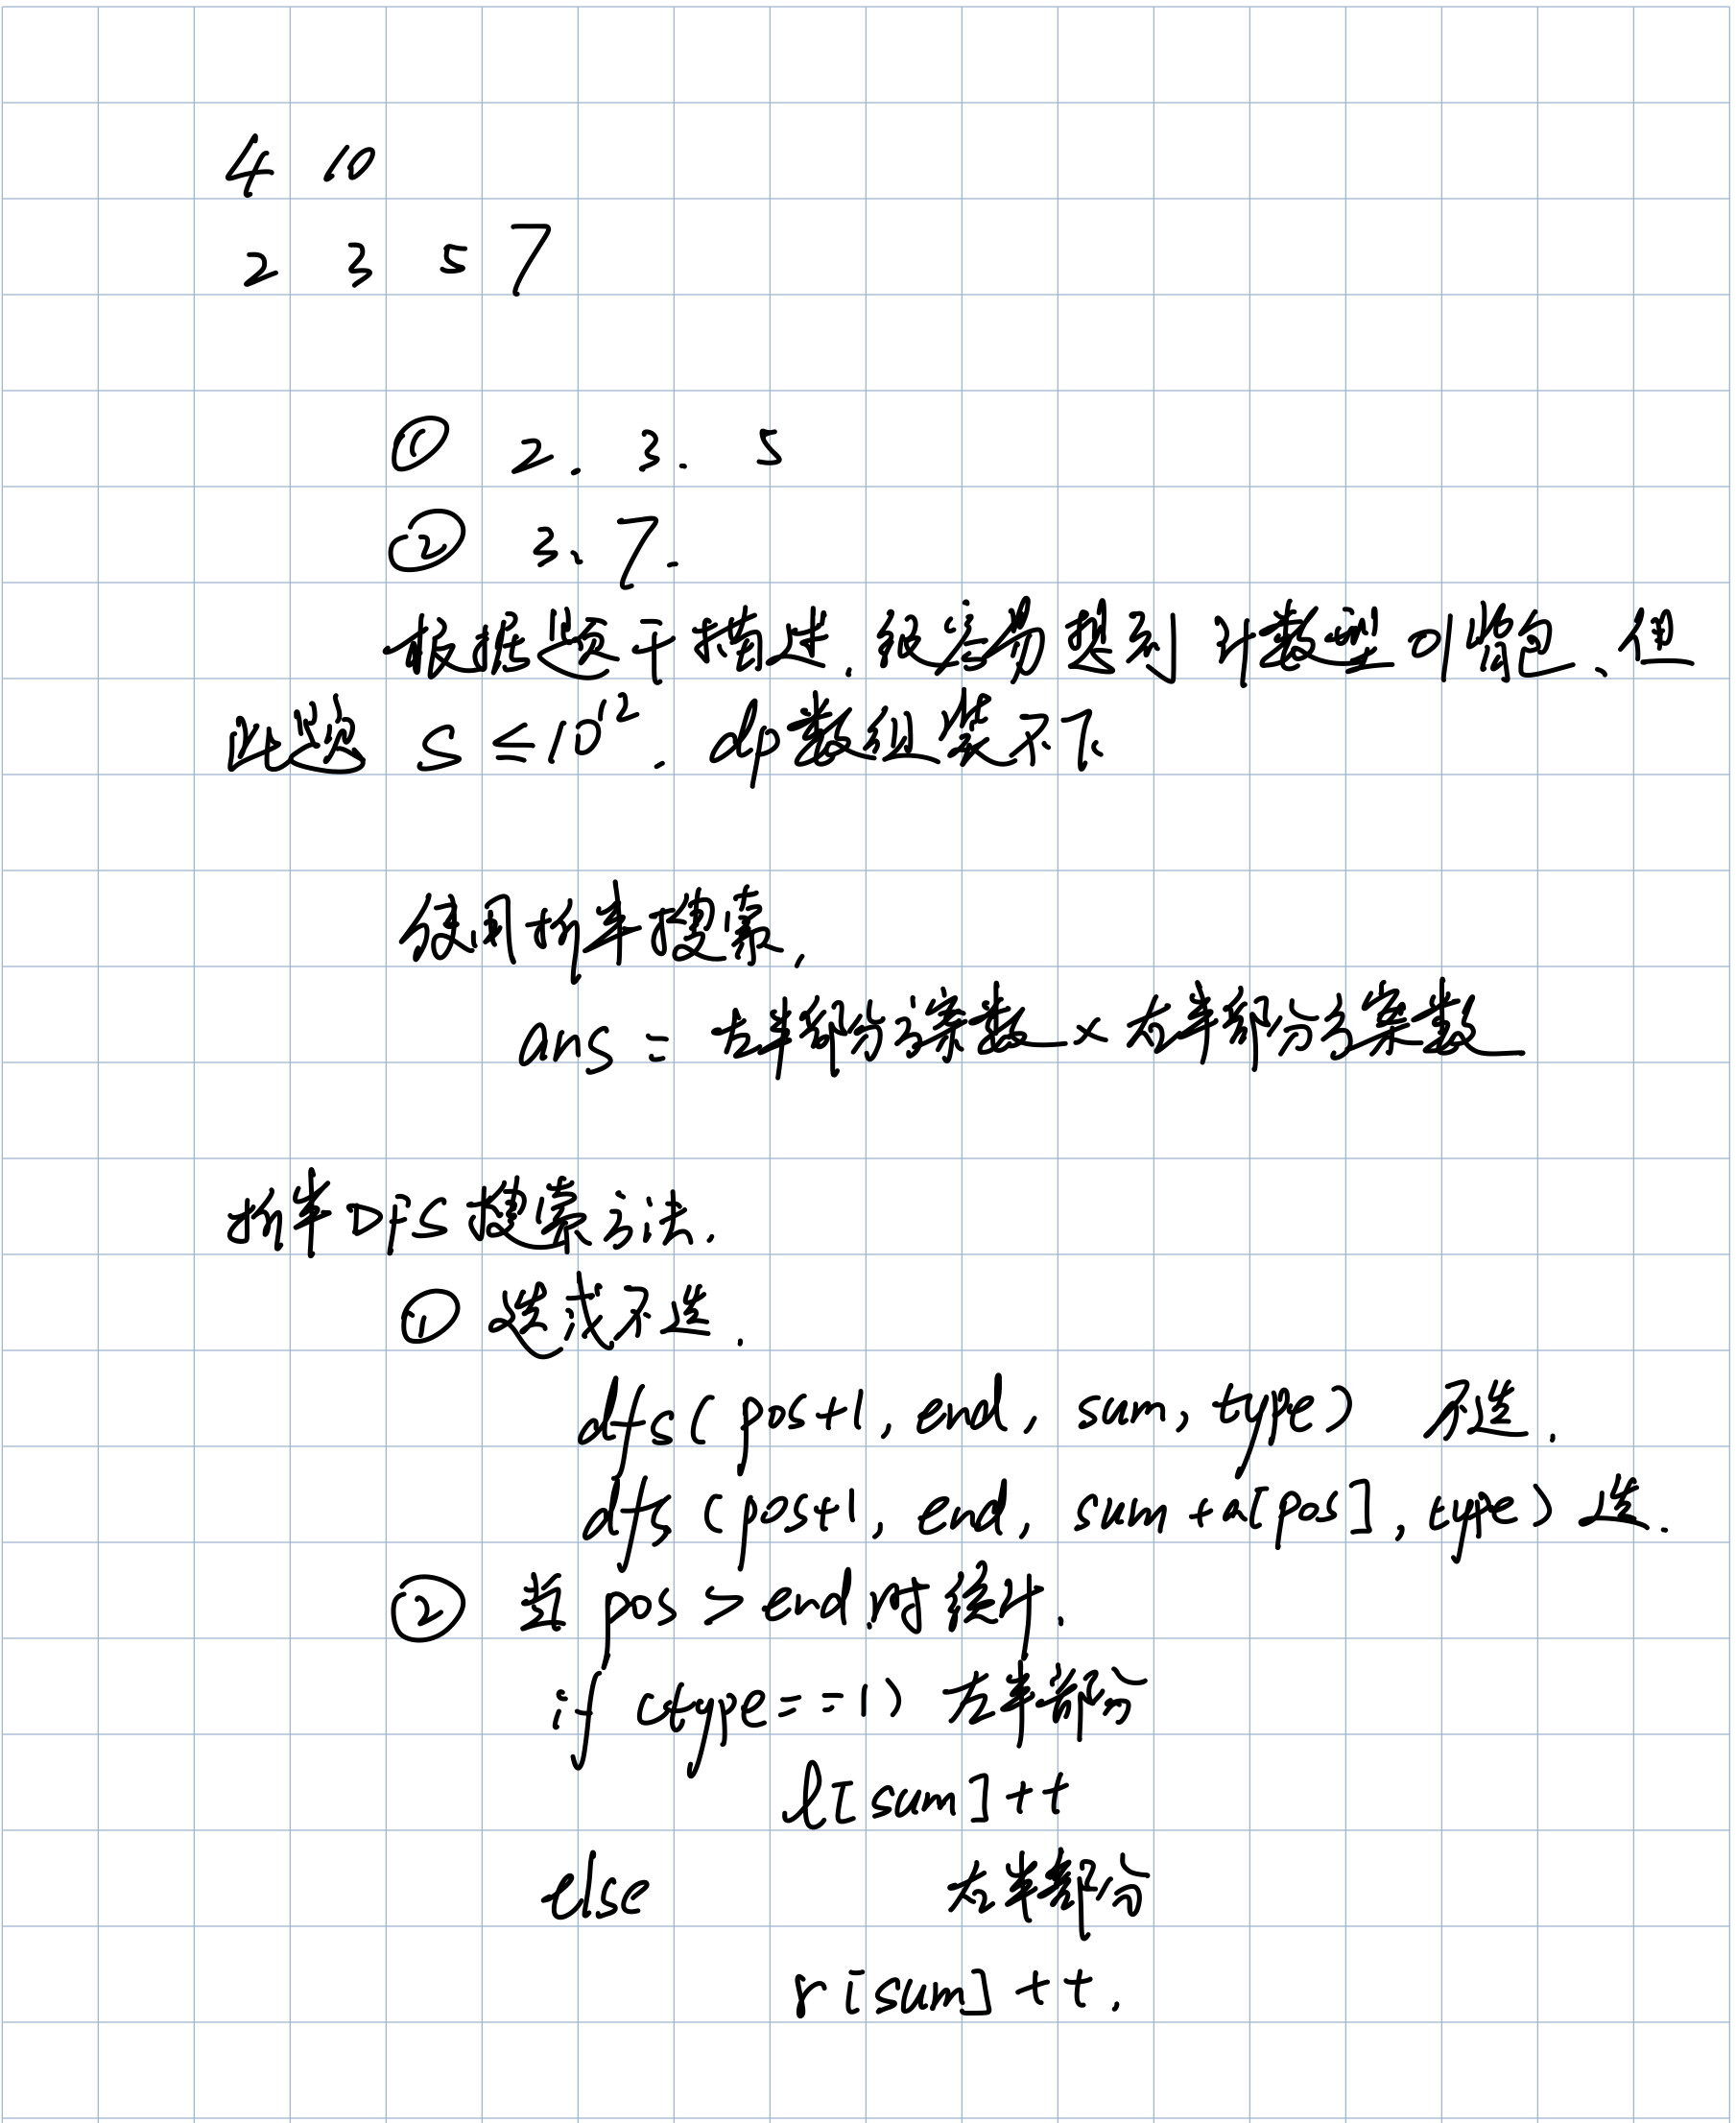 4 10
2 3 5 7
① 2. 3. 5
② 3. 7.
根据题干描述,很容易想到计数型01背包,但
此题 S ≤ 10¹², dp数组装不下
使用折半搜索,
ans = 左半部分方案数 × 右半部分方案数
折半DFS搜索方法.
① 选或不选.
dfs( pos+1, end, sum, type) 不选.
dfs (pos+1, end, sum +a[pos], type) 选.
② 当 pos > end 时统计.
if (type==1) 左半部分
l[sum]++
else 右半部分
r[sum]++.